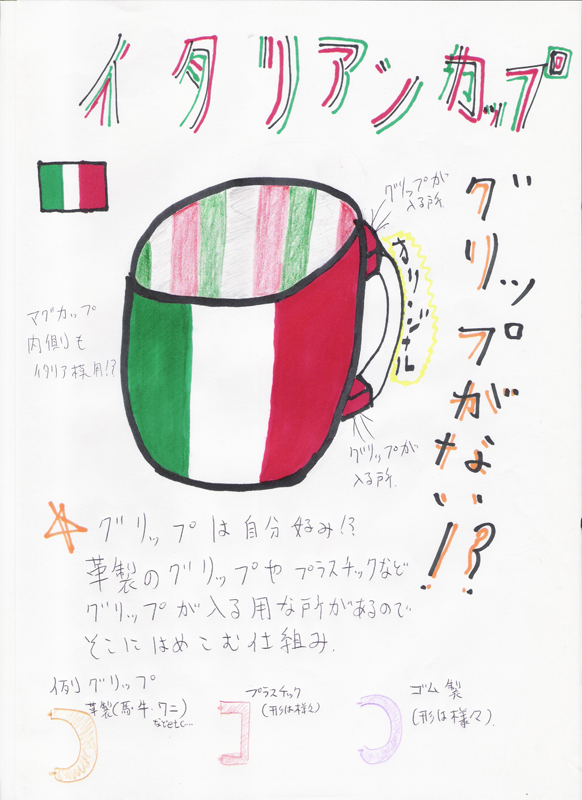 イタリアンカップ
グリップがない!?
グリップが
入る所
オリジナル
マグカップ
内側も
イタリア採用!?
グリップが
入る所.
グリップは自分好み!?
革製のグリップやプラスチックなど
グリップが入る用な所があるので
そこにはめこむ仕組み.
例グリップ
革製(馬・牛・ワニ)
などetc...
プラスチック
(形は様々)
ゴム製
(形は様々).